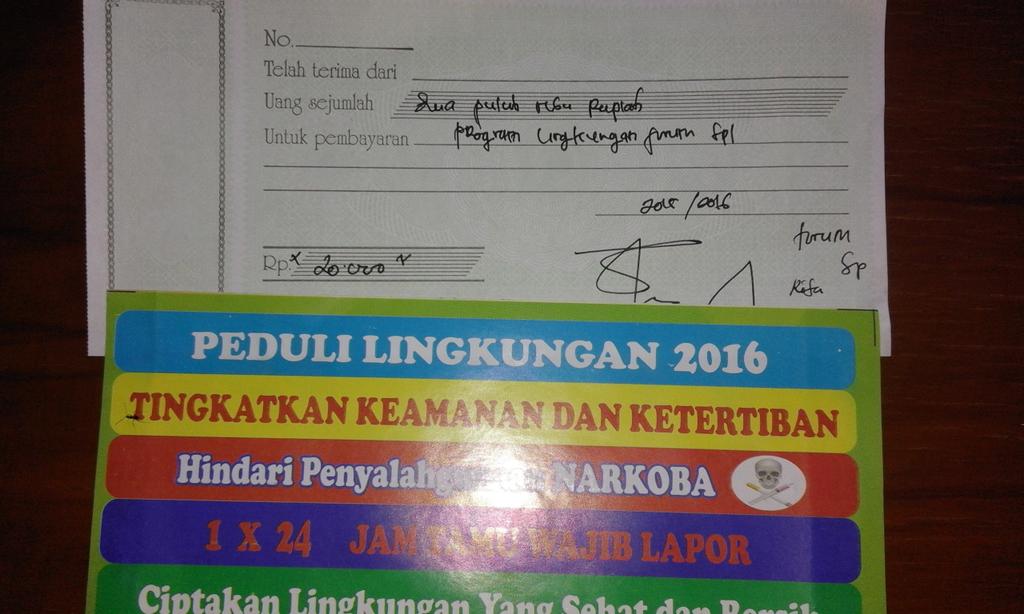 No.
Telah terima dari
Uang sejumlah dua puluh ribu Rupiah
Untuk pembayaran program lingkungan forum Sp1
2015/2016
Rp. 20.000
forum
Sp
PEDULI LINGKUNGAN 2016
TINGKATKAN KEAMANAN DAN KETERTIBAN
Hindari NARKOBA
1 X 24 JAM TAMU WAJIB LAPOR
Ciptakan Lingkungan Yang Sehat dan Bersih